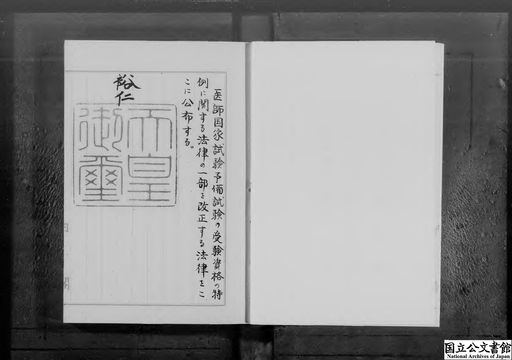 医師国家試験予備試験の受験資格の特
例に関する法律の一部を改正する法律をこ
こに公布する。
裕仁
天皇
御璽
国立公文書館
National Archives of Japan